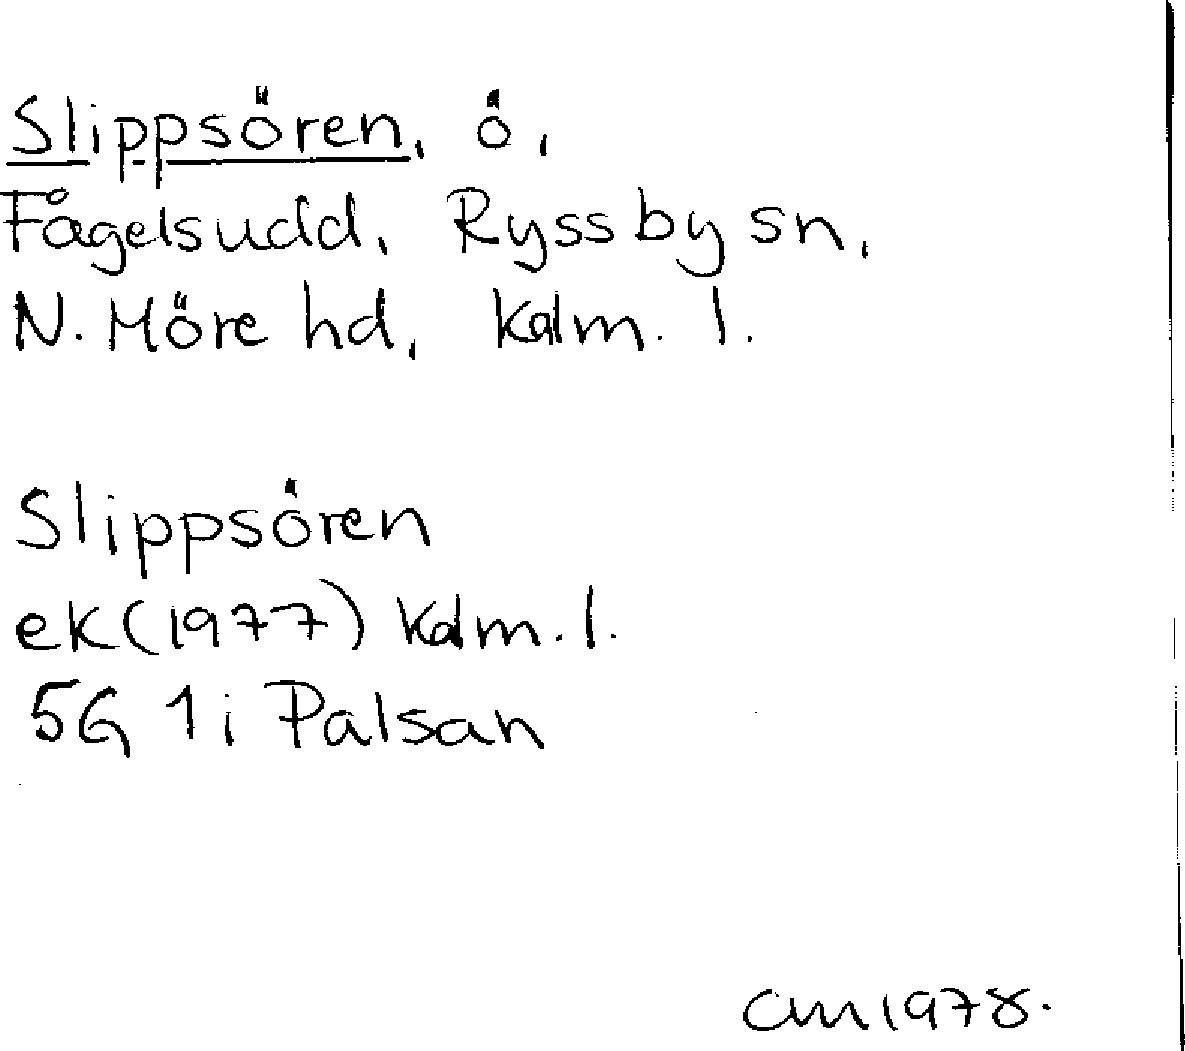 Slippsören, ö,
Fågelsudd, Ryssby sn,
N. Möre hd, Kalm. l.
Slippsören
ek (1977) Kalm. l.
5G 1i Palsan
cm 1978.